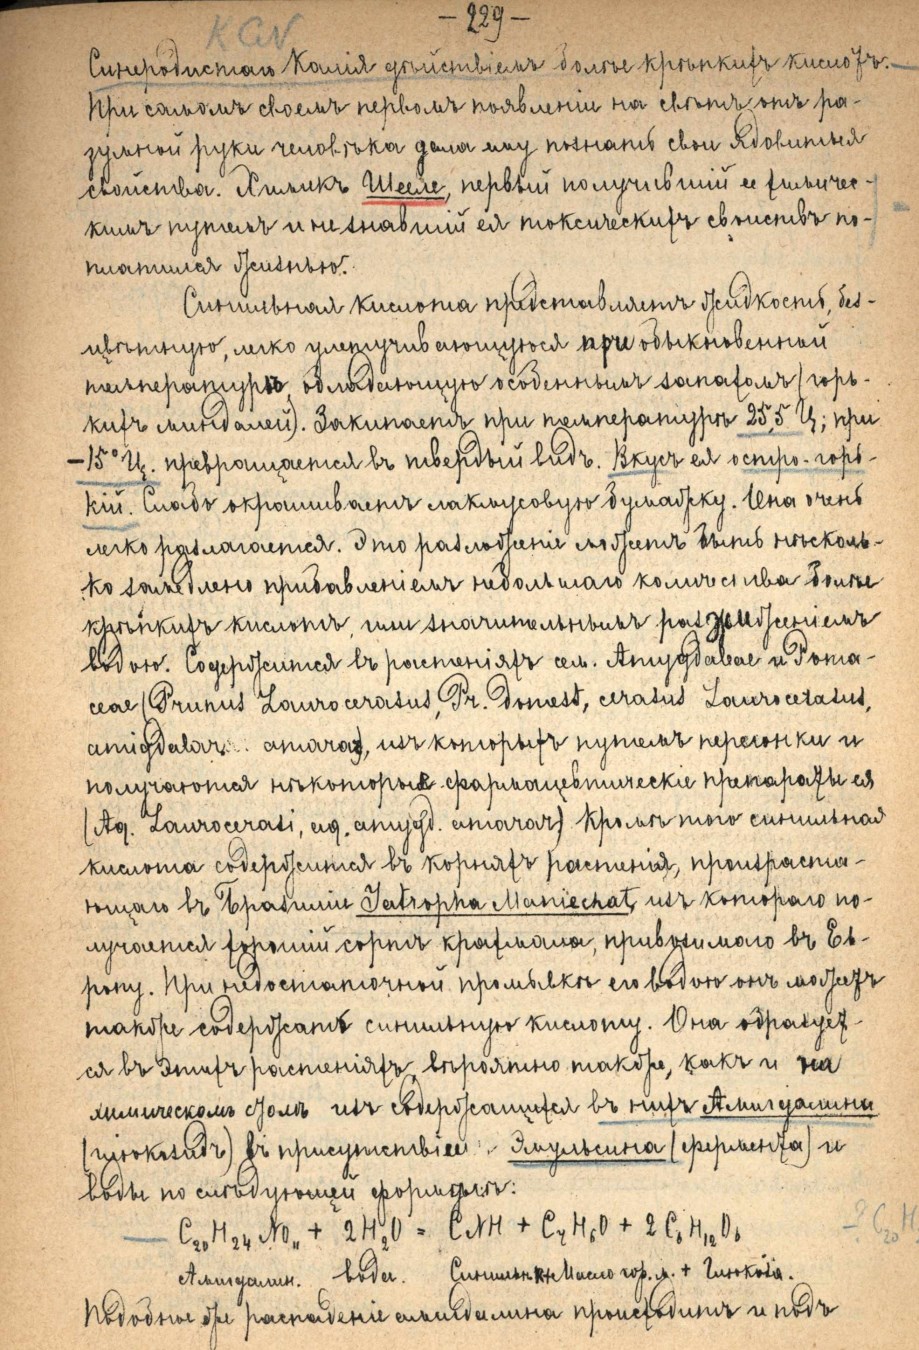 KCN
— 229 —
Синеродистаго Калія дѣйствіемъ болѣе крѣпкихъ кислотъ. —
При самомъ своемъ первомъ появленіи на свѣтъ отъ ра-
зумной руки человѣка дала ему познать свои ядовитыя
свойства. Химикъ Шееле, первый получившій ее химичес-
кимъ путемъ и не знавшій ея токсическихъ свойствъ по-
платился жизнью.
Синильная кислота представляетъ жидкость, без-
цвѣтную, легко улетучивающуюся при обыкновенной
температурѣ, обладающую особеннымъ запахомъ (горь-
кихъ миндалей). Закипаетъ при температурѣ 25,5 Ц; при
-15° Ц. превращается въ твердый видъ. Вкусъ ея остро-горь-
кій. Слабо окрашиваетъ лакмусовую бумажку. Она очень
легко разлагается. Это разложеніе можетъ быть нѣсколь-
ко замедлено прибавленіемъ небольшаго количества болѣе
крѣпкихъ кислотъ, или значительнымъ разжиженіемъ
водою. Содержится въ растеніяхъ сем. Amygdaleae и Poma-
ceae (Prunus Laurocerasus, Pr. Domest, cerasus Laurocerasus,
amigdalar. amarar), изъ которыхъ путемъ перегонки и
получаются нѣкоторые фармацевтическіе препараты ея
(Aq. Laurocerasi, aq. amygd. amarar) Кромѣ того синильная
кислота содержится въ корняхъ растенія, произраста-
ющаго въ Бразиліи Jatropha Maniechat, изъ котораго по-
лучается хорошій сортъ крахмала, привозимаго въ Ев-
ропу. При недостаточной промывкѣ его водою онъ можетъ
также содержать синильную кислоту. Она образует-
ся въ этихъ растеніяхъ, вѣроятно также, какъ и на
химическомъ столѣ изъ содержащихся въ нихъ Амигдалина
(глюкозидъ) въ присутствіе Эмульсина (фермента) и
воды по слѣдующей формулѣ:
C20H24NO11 + 2H2O = CNH + C7H6O + 2C6H12O6
-? C20H
Амигдалин. вода. Синильн.к. Масло гор.м. + Глюкоза.
Подобное же распаденіе амигдалина происходитъ и подъ